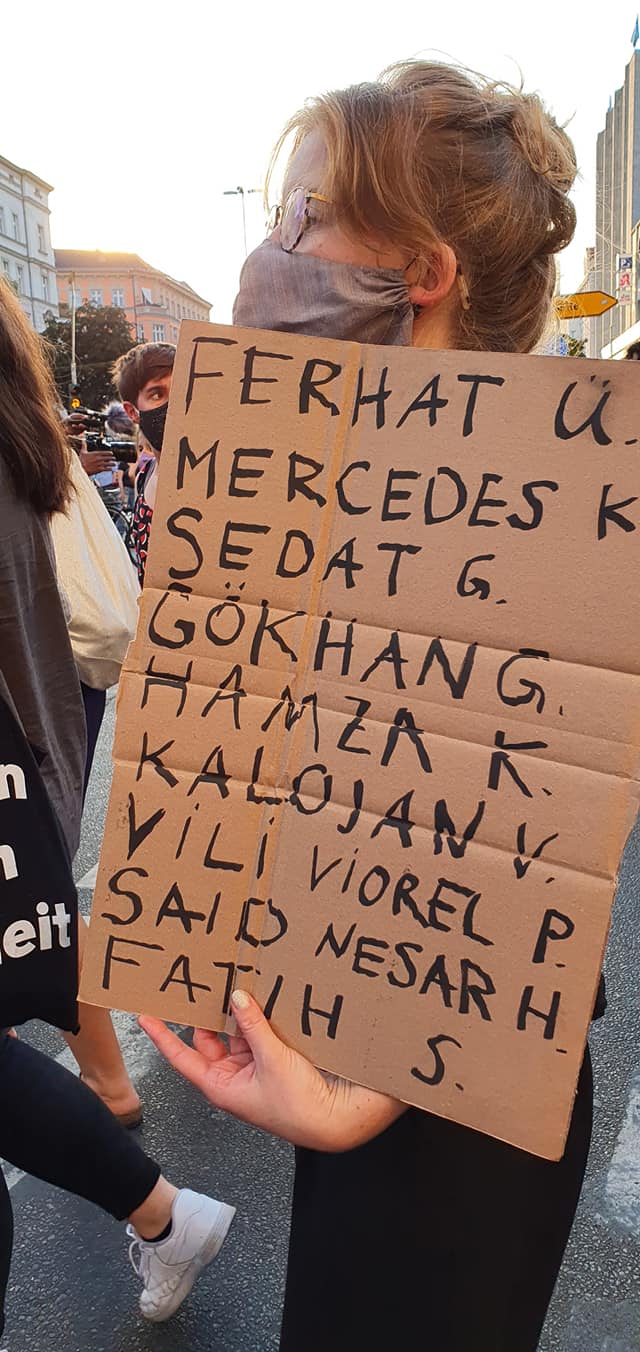 FERHAT Ü.
MERCEDES K
SEDAT G.
GÖKHAN G.
HAMZA K.
KALOJAN V.
VİLİ VİOREL P.
SAID NESAR H.
FATIH S.
n
n
eit